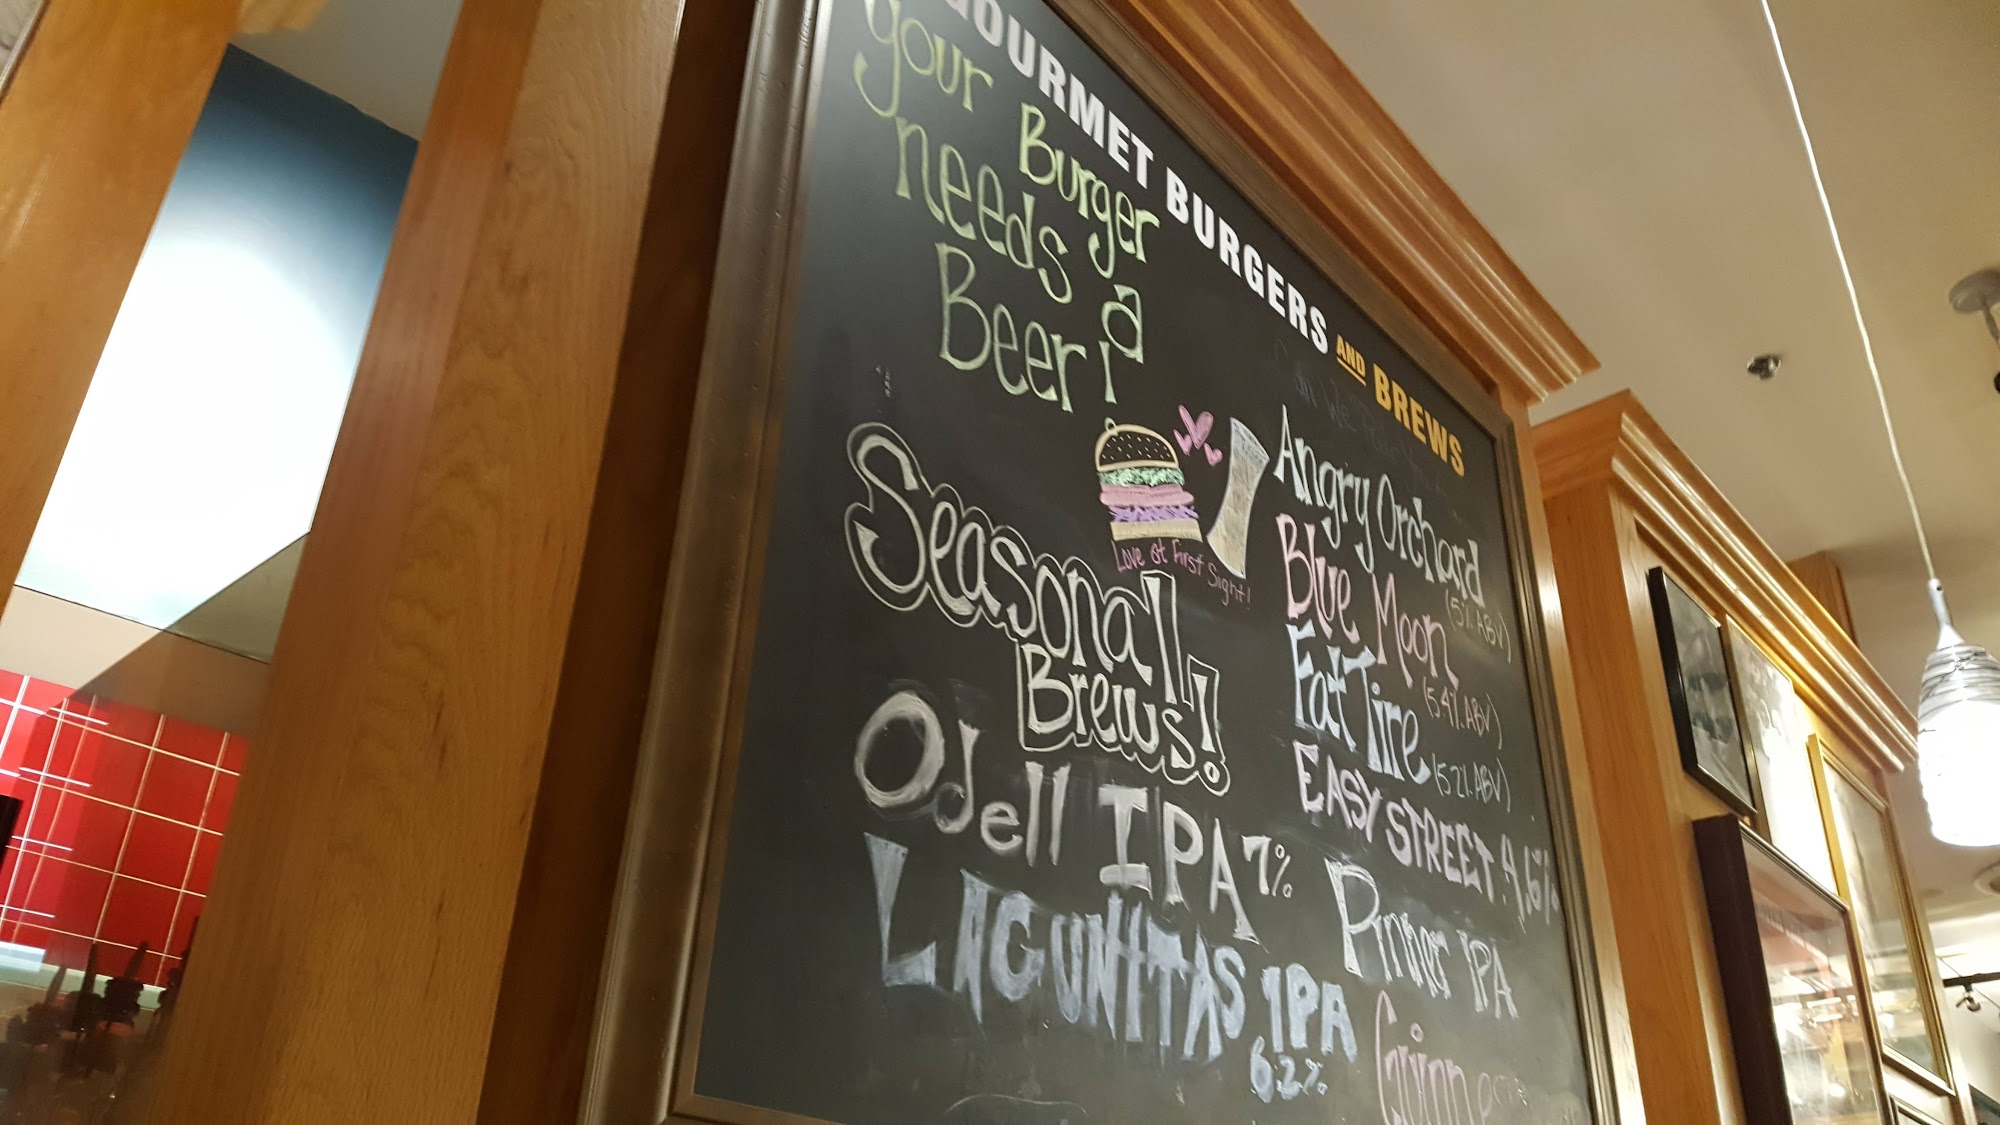 GOURMET BURGERS AND BREWS
your Burger
needs a
Beer!
Love at First Sight!
Seasonal
Brews!
Odell IPA 7%
LAGUNITAS IPA
6.2%
Angry Orchard
(5% ABV)
Blue Moon
(5.4% ABV)
Fat Tire
(5.2% ABV)
EASY STREET 4.6%
Pinner IPA